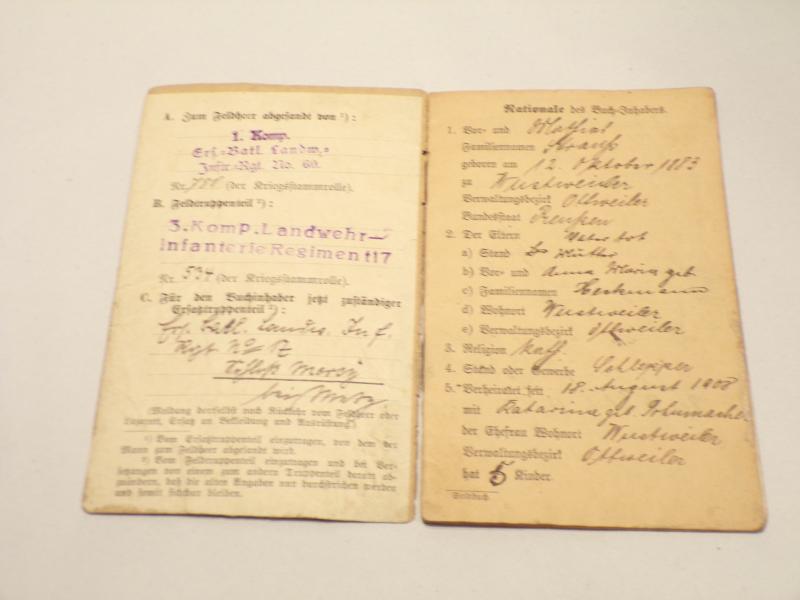 A. Zum Feldheer abgesandt von ¹):
1. Komp.
Ers.-Batl. Landw.-
Inftr.-Rgt. No. 60.
Nr. 788 (der Kriegsstammrolle).
B. Feldtruppenteil ²):
3. Komp. Landwehr-
Infanterie Regiment 17
Nr. 534 (der Kriegsstammrolle).
C. Für den Buchinhaber jetzt zuständiger
Ersatztruppenteil ²):
Ers. Batl. Landw. Inf.
Rgt No 17
Schloß Morsy
bei Metz.
(Meldung derselbst nach Rückkehr vom Feldheer oder
Lazarett, Ersatz an Bekleidung und Ausrüstung.)
¹) Vom Ersatztruppenteil einzutragen, von dem der
Mann zum Feldheer abgesandt wird.
²) Vom Feldtruppenteil einzutragen und bei Ver-
setzungen von einem zum andern Truppenteil derart ab-
zuändern, daß die alten Angaben nur durchstrichen werden
und somit sichtbar bleiben.
Nationale des Buch-Inhabers.
1. Vor- und Mathias
Familiennamen Strauß
geboren am 12. Oktober 1883
zu Wustweiler
Verwaltungsbezirk Ottweiler
Bundesstaat Preußen
2. Der Eltern Vater tot
a) Stand Mutter
b) Vor- und Anna Maria geb
c) Familiennamen Heckmann
d) Wohnort Wustweiler
e) Verwaltungsbezirk Ottweiler
3. Religion kath.
4. Stand oder Gewerbe Schlepper
5. Verheiratet seit 18. August 1908
mit Katarina geb. Schumacher
der Ehefrau Wohnort Wustweiler
Verwaltungsbezirk Ottweiler
hat 5 Kinder.
Soldbuch.